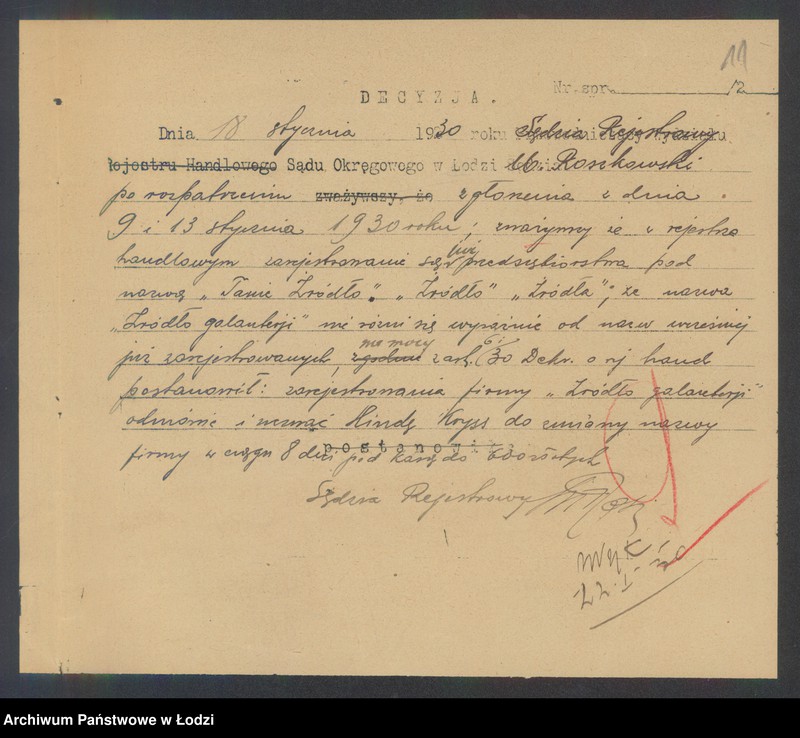 11
DECYZJA.
Nr. spr. /2
Dnia 18 stycznia 1930 roku Sędzia Rejestrowy
Rejestru Handlowego Sądu Okręgowego w Łodzi M. Roszkowski
po rozpatrzeniu zważywszy, że zgłoszenia z dnia
9 i 13 stycznia 1930 roku; zważywszy że w rejestrze
handlowym zarejestrowane są już przedsiębiorstwa pod
nazwą „Tanie Źródło". „Źródło" „Źródła"; że nazwa
„Źródło galanterji" nie różni się wyraźnie od nazw wcześniej
już zarejestrowanych, zgodnie na mocy z art. 30 Dekr. o rej hand
postanowił: zarejestrowania firmy „Źródło galanterji"
odmówić i wezwać Hindę Kryss do zmiany nazwy
postanowił:
firmy w ciągu 8 dni pod karą do złotych
Sędzia Rejestrowy
22.I.
Archiwum Państwowe w Łodzi